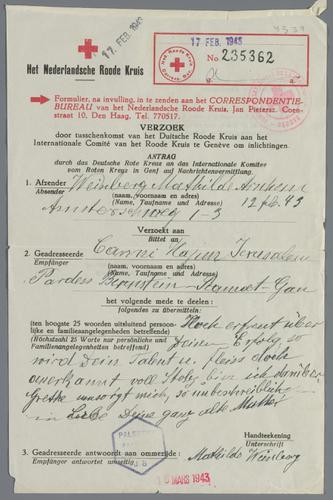 17 FEB. 1943
17 FEB. 1943
No 235362
Het Nederlandsche Roode Kruis
Formulier, na invulling, in te zenden aan het CORRESPONDENTIE-
BUREAU van het Nederlandsche Roode Kruis. Jan Pietersz. Coen-
straat 10, Den Haag, Tel. 770517.
VERZOEK
door tusschenkomst van het Duitsche Roode Kruis aan het
Internationale Comité van het Roode Kruis te Genève om inlichtingen.
ANTRAG
durch das Deutsche Rote Kreuz an das Internationale Komitee
vom Roten Kreuz in Genf auf Nachrichtenvermittlung.
1. Afzender Weinberg Mathilde Arnhem
Absender (naam, voornaam en adres)
(Name, Taufname und Adresse) 12 feb. 43
1-3
Verzoekt aan
Bittet an
2. Geadresseerde Jerusalem
Empfänger (naam, voornaam en adres)
(Name, Taufname und Adresse)
Pardess Ramat-Gan
het volgende mede te deelen:
folgendes zu übermitteln:
(ten hoogste 25 woorden uitsluitend persoon-
lijke en familieaangelegenheden betreffend)
(Höchstzahl 25 Worte nur persönliche und
Familienangelegenheiten betreffend)
Hoch erfreut über
Deinen Erfolg, so
wird Dein Talent u. fleiss doch
anerkannt voll Stolz bin ich darüber
umsorgt mich, so unbeschreiblich
in Liebe Deine ganz alte Mutter
Handteekening
Unterschrift
3. Geadresseerde antwoordt aan ommezijde:
Empfänger antwortet umseitig:
Mathilde Weinberg
MARS 1943